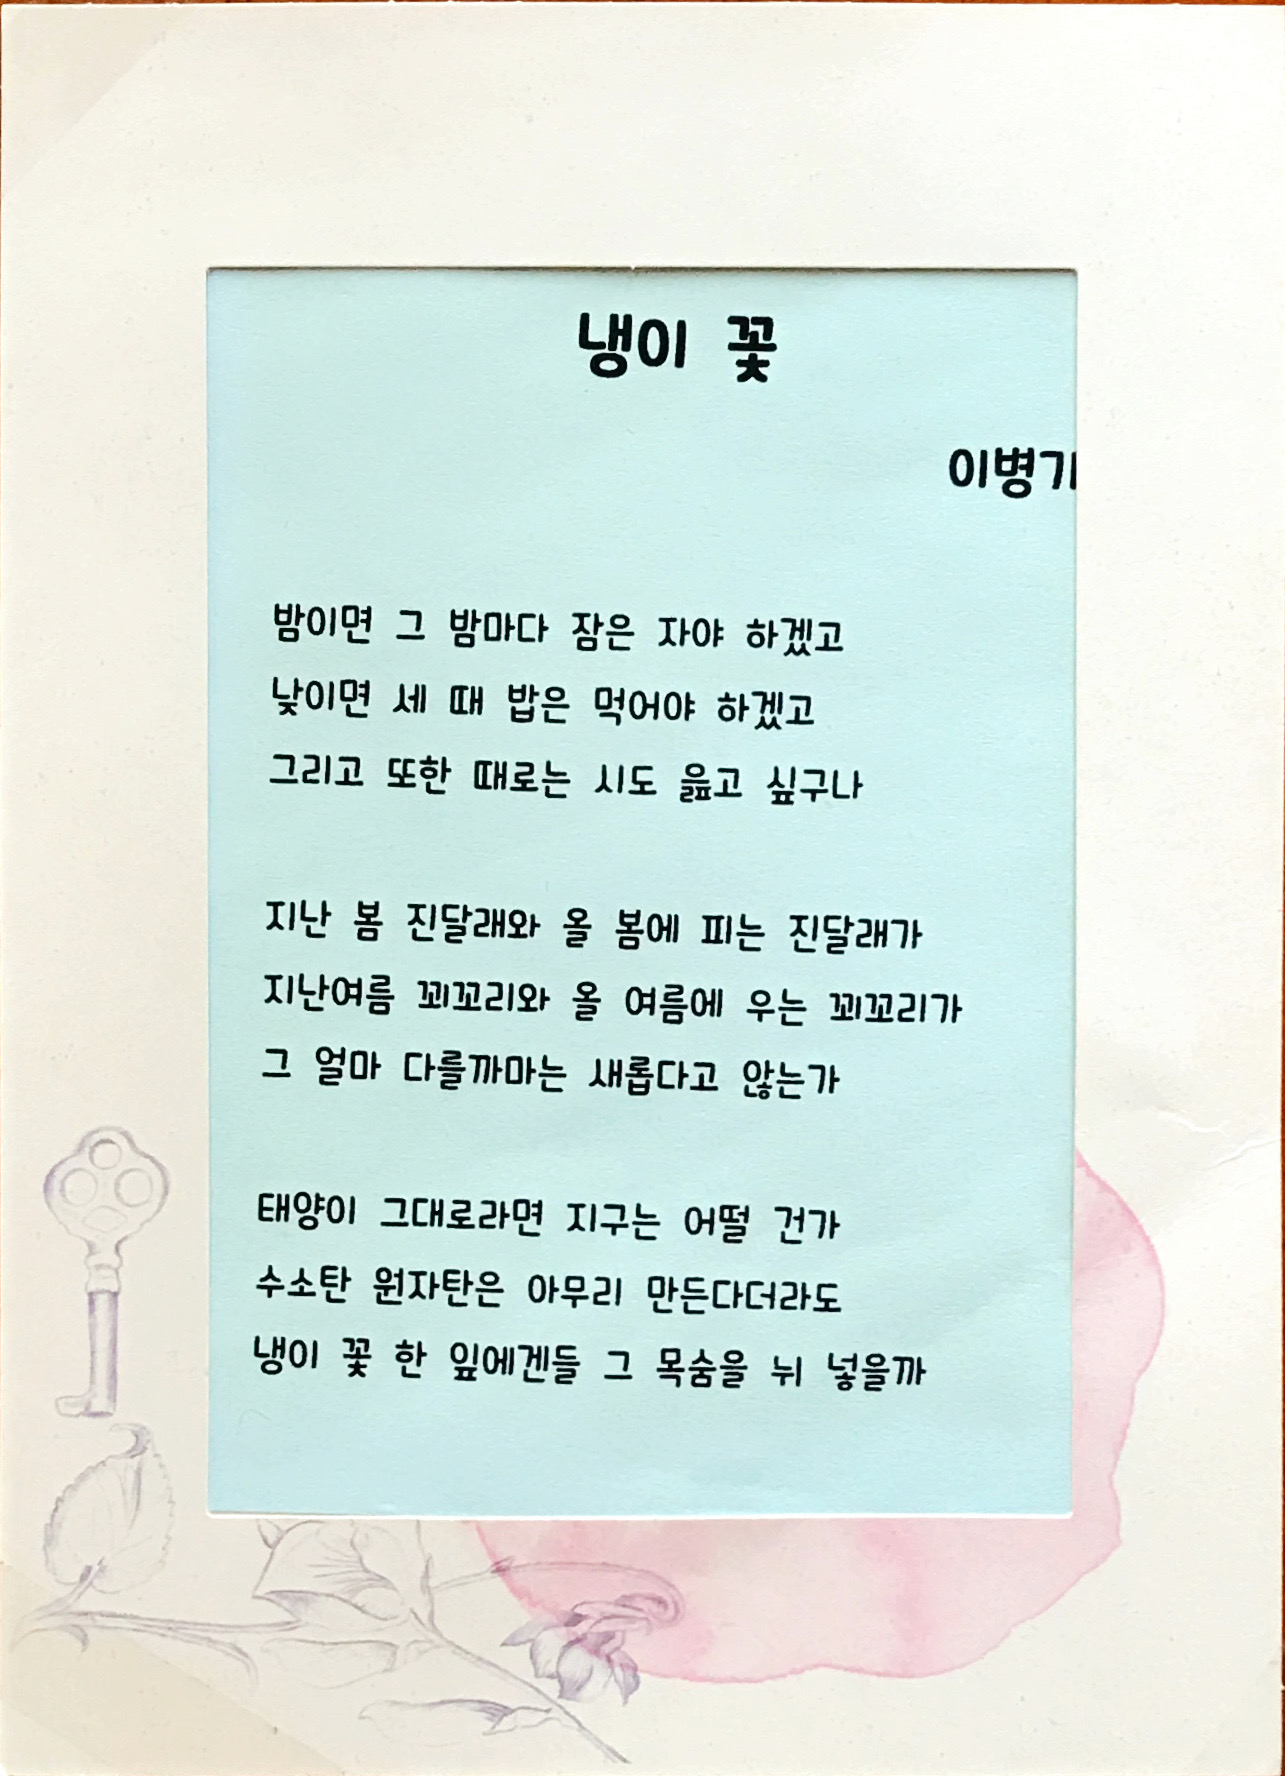 냉이 꽃
이병기
밤이면 그 밤마다 잠은 자야 하겠고
낮이면 세 때 밥은 먹어야 하겠고
그리고 또한 때로는 시도 읊고 싶구나
지난 봄 진달래와 올 봄에 피는 진달래가
지난여름 꾀꼬리와 올 여름에 우는 꾀꼬리가
그 얼마 다를까마는 새롭다고 않는가
태양이 그대로라면 지구는 어떨 건가
수소탄 원자탄은 아무리 만든다더라도
냉이 꽃 한 잎에겐들 그 목숨을 뉘 넣을까